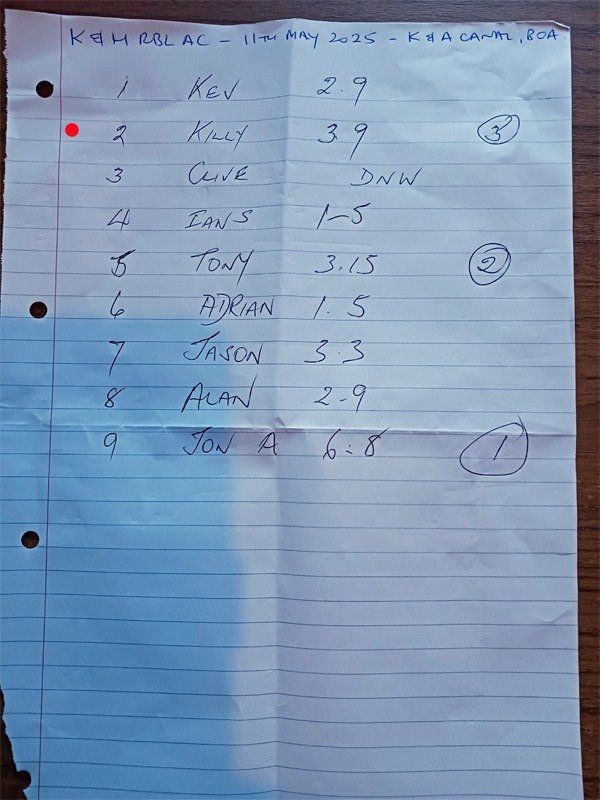 K & M RBL AC - 11TH MAY 2025 - K & A CANAL, BOA.
1 KEV 2.9
2 KILLY 3.9 3
3 CLIVE DNW
4 IANS 1-5
5 TONY 3.15 2
6 ADRIAN 1.5
7 JASON 3.3
8 ALAN 2-9
9 JON A 6:8 1